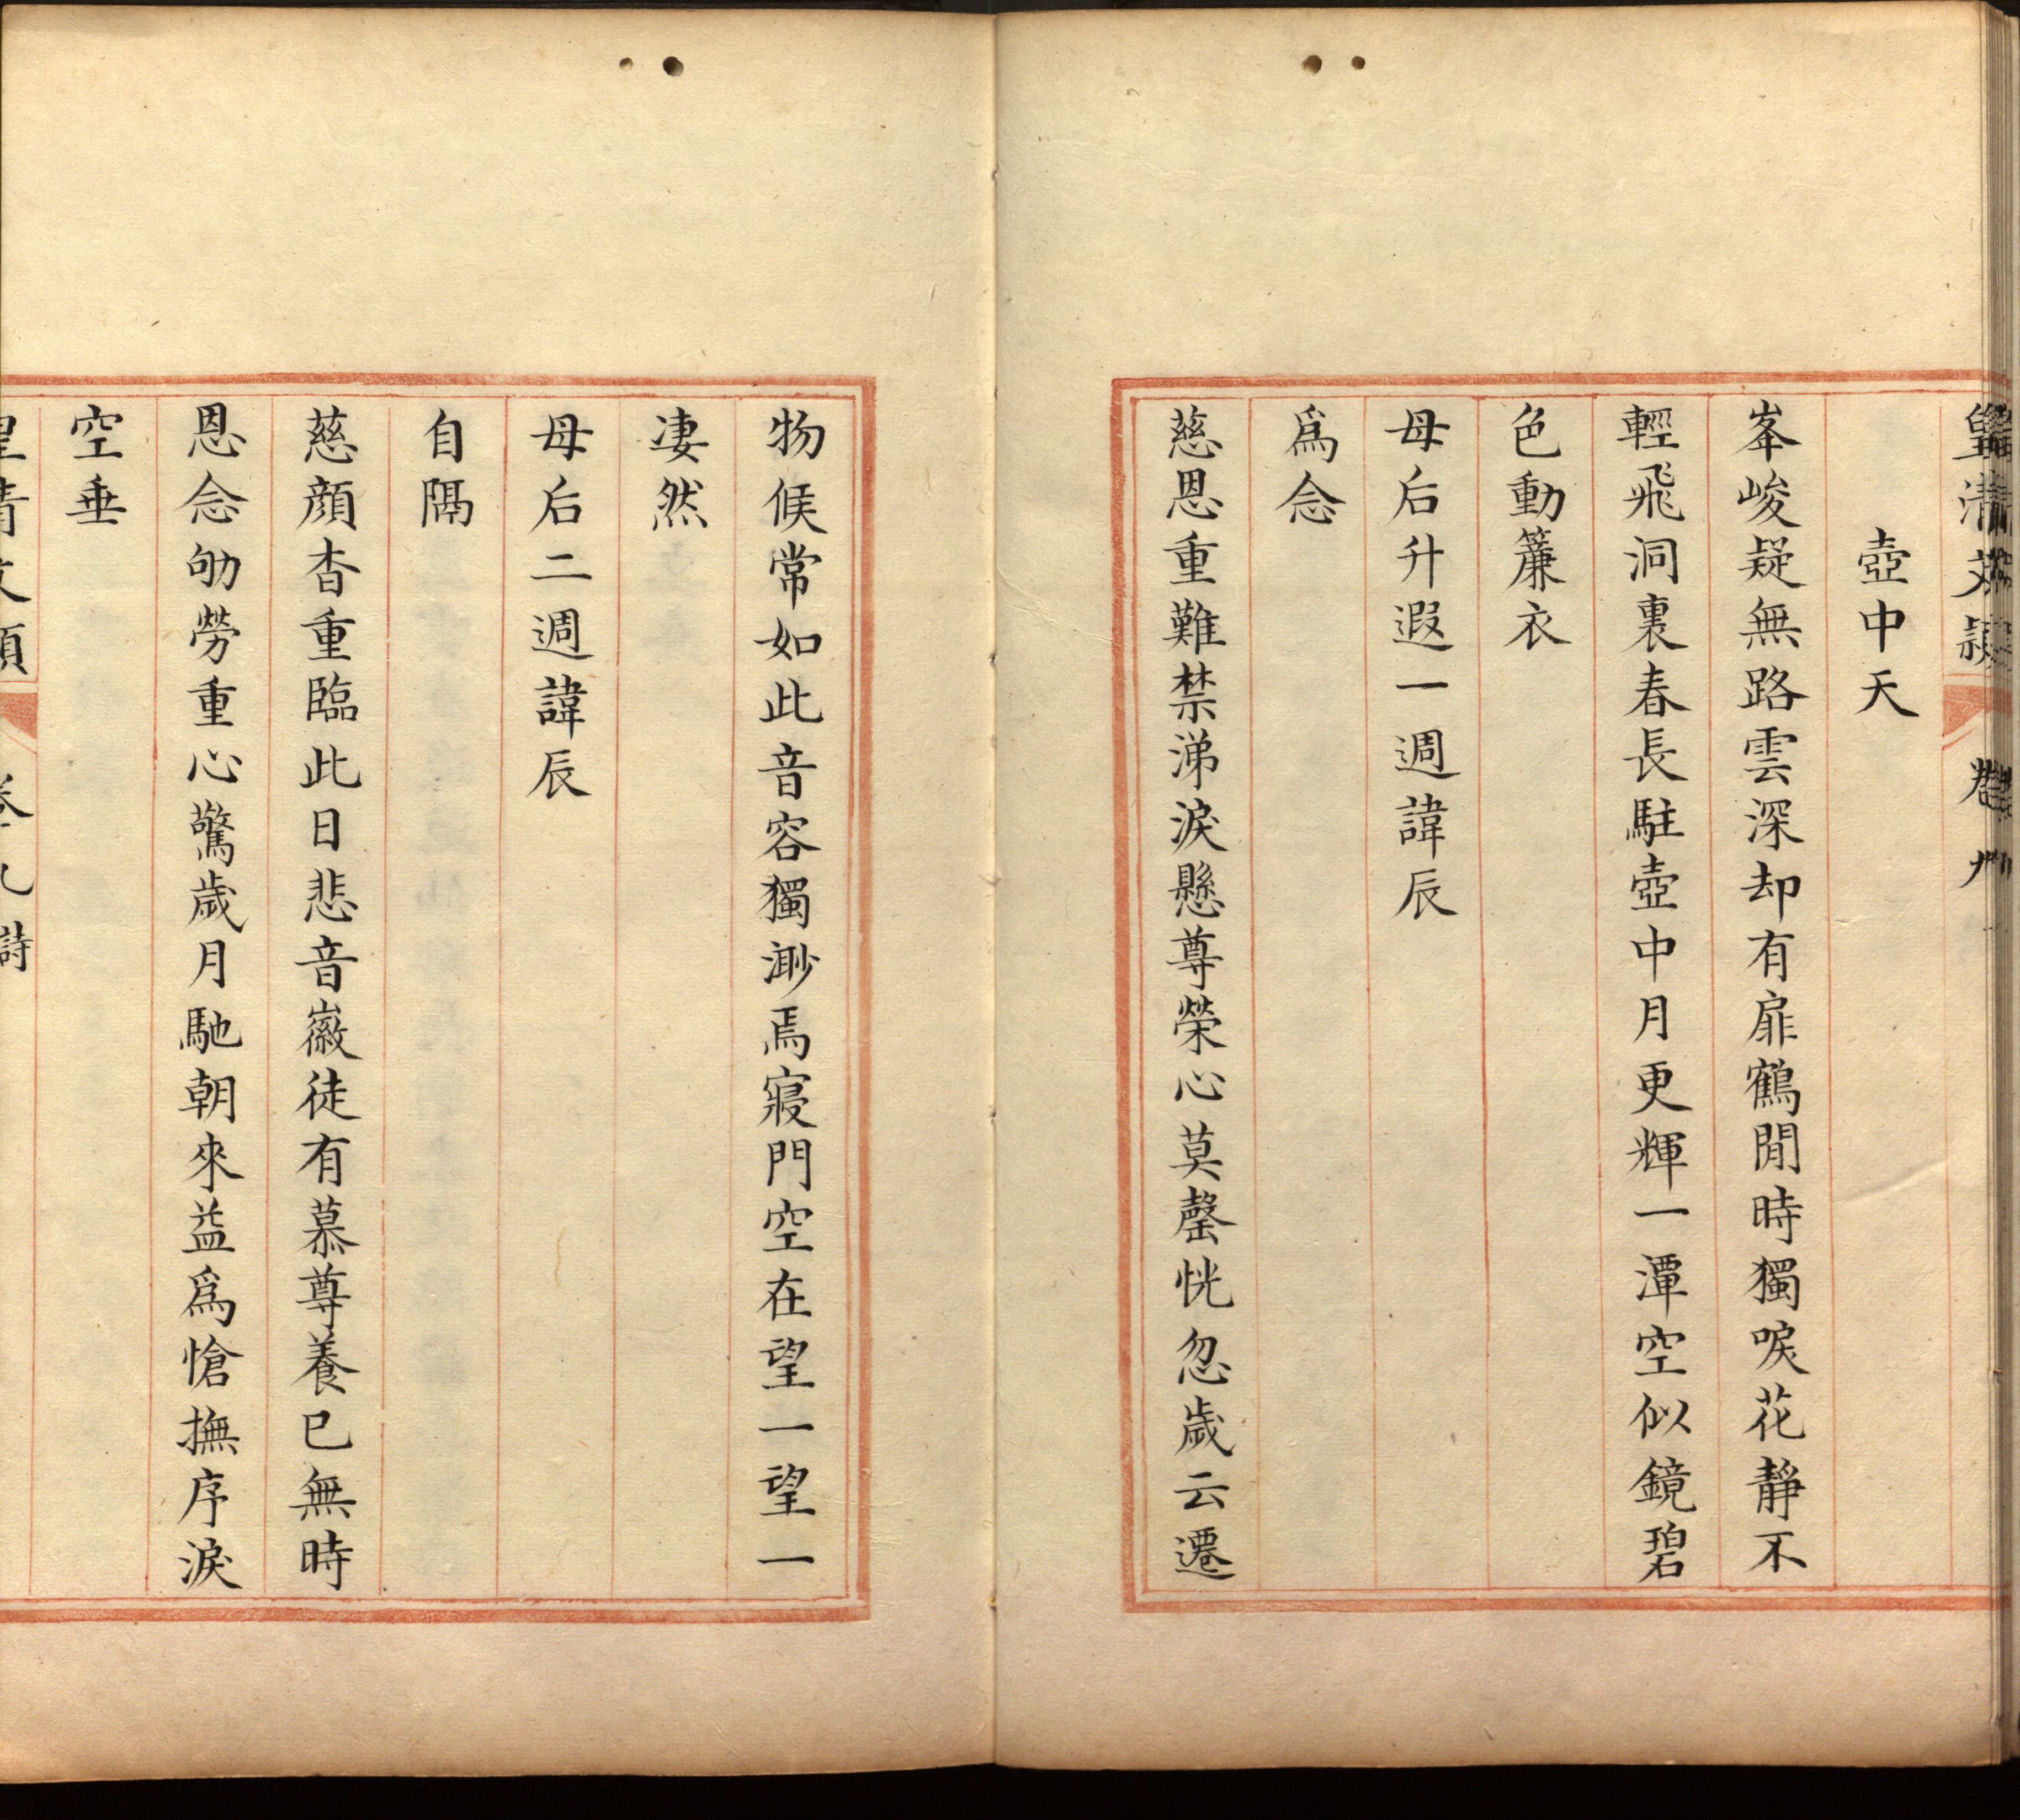 皇清文穎 卷九
壺中天
峯峻疑無路雲深却有扉鶴閒時獨唳花靜不
輕飛洞裏春長駐壺中月更輝一潭空似鏡碧
色動簾衣
母后升遐一週諱辰
爲念
慈恩重難禁涕淚懸尊榮心莫罄恍忽歲云遷
物候常如此音容獨渺焉寢門空在望一望一
凄然
母后二週諱辰
自隔
慈顔杳重臨此日悲音徽徒有慕尊養已無時
恩念劬勞重心驚歲月馳朝來益爲愴撫序淚
空垂
皇清文穎 卷九詩